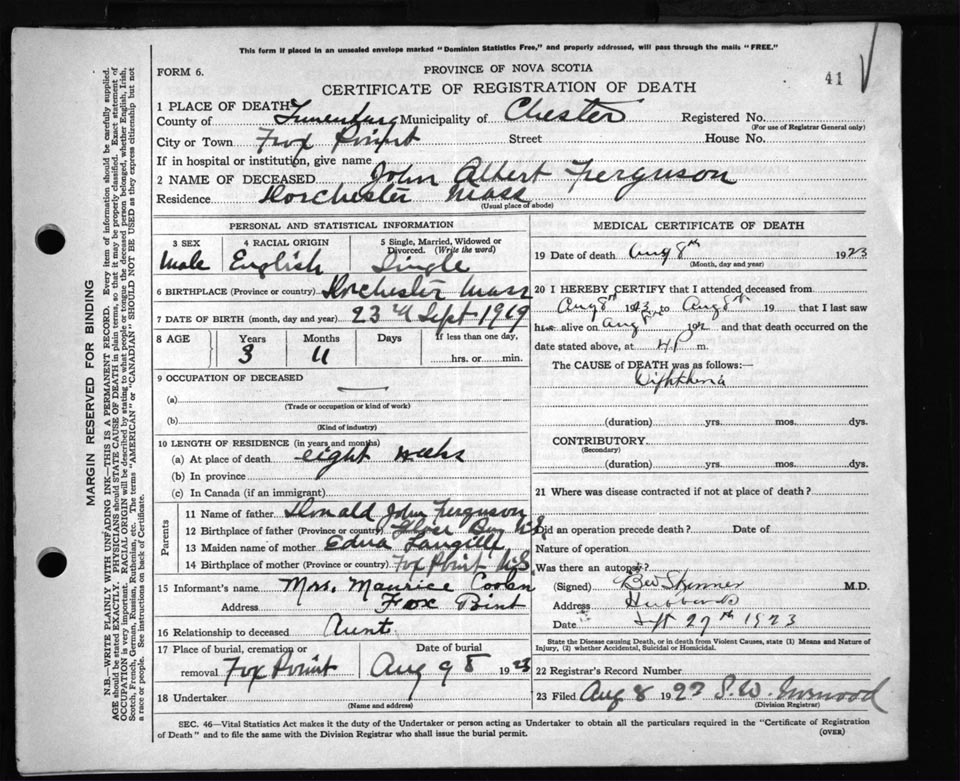 This form if placed in an unsealed envelope marked "Dominion Statistics Free," and properly addressed, will pass through the mails "FREE."
FORM 6.
PROVINCE OF NOVA SCOTIA
41
CERTIFICATE OF REGISTRATION OF DEATH
1 PLACE OF DEATH
County of Lunenburg Municipality of Chester Registered No.
(For use of Registrar General only)
City or Town Fox Point Street House No.
If in hospital or institution, give name
2 NAME OF DECEASED John Albert Ferguson
Residence Dorchester Mass
(Usual place of abode)
PERSONAL AND STATISTICAL INFORMATION
3 SEX 4 RACIAL ORIGIN 5 Single, Married, Widowed or Divorced. (Write the word)
Male English Single
6 BIRTHPLACE (Province or country) Dorchester Mass
7 DATE OF BIRTH (month, day and year) 23 Sept 1919
8 AGE Years Months Days If less than one day,
3 11 hrs. or min.
9 OCCUPATION OF DECEASED
(a)
(Trade or occupation or kind of work)
(b)
(Kind of industry)
10 LENGTH OF RESIDENCE (in years and months)
(a) At place of death eight weeks
(b) In province
(c) In Canada (if an immigrant)
Parents
11 Name of father Donald John Ferguson
12 Birthplace of father (Province or country) Glace Bay N.S.
13 Maiden name of mother Edna Langille
14 Birthplace of mother (Province or country) Fox Point N.S.
15 Informant's name Mrs. Maurice Coolen
Address Fox Point
16 Relationship to deceased Aunt
17 Place of burial, cremation or removal Date of burial
Fox Point Aug 9 1923
18 Undertaker
(Name and address)
MEDICAL CERTIFICATE OF DEATH
19 Date of death Aug 8th 1923
(Month, day and year)
20 I HEREBY CERTIFY that I attended deceased from
Aug 8th 1923 to Aug 8th 19 that I last saw
him alive on Aug 192 and that death occurred on the
date stated above, at 4 P m.
The CAUSE OF DEATH was as follows:—
Diphtheria
(duration) yrs. mos. dys.
CONTRIBUTORY
(Secondary)
(duration) yrs. mos. dys.
21 Where was disease contracted if not at place of death?
Did an operation precede death? Date of
Nature of operation
Was there an autopsy?
(Signed) Skinner M.D.
Address Hubbards
Date Sept 27th 1923
State the Disease causing Death, or in death from Violent Causes, state (1) Means and Nature of Injury, (2) whether Accidental, Suicidal or Homicidal.
22 Registrar's Record Number
23 Filed Aug 8 1922 S.W.
(Division Registrar)
SEC. 46—Vital Statistics Act makes it the duty of the Undertaker or person acting as Undertaker to obtain all the particulars required in the "Certificate of Registration
of Death" and to file the same with the Division Registrar who shall issue the burial permit.
(OVER)
MARGIN RESERVED FOR BINDING
N.B.—WRITE PLAINLY WITH UNFADING INK—THIS IS A PERMANENT RECORD. Every item of information should be carefully supplied.
AGE should be stated EXACTLY. PHYSICIANS should STATE CAUSE OF DEATH in plain terms, so that it may be properly classified. Exact statement of
OCCUPATION is very important. RACIAL ORIGIN will be described by stating to what people or tongue the deceased person belonged, whether English, Irish,
Scotch, French, German, Russian, Ruthenian, etc. The terms "AMERICAN" or "CANADIAN" SHOULD NOT BE USED as they express citizenship but not
a race or people. See instructions on back of Certificate.